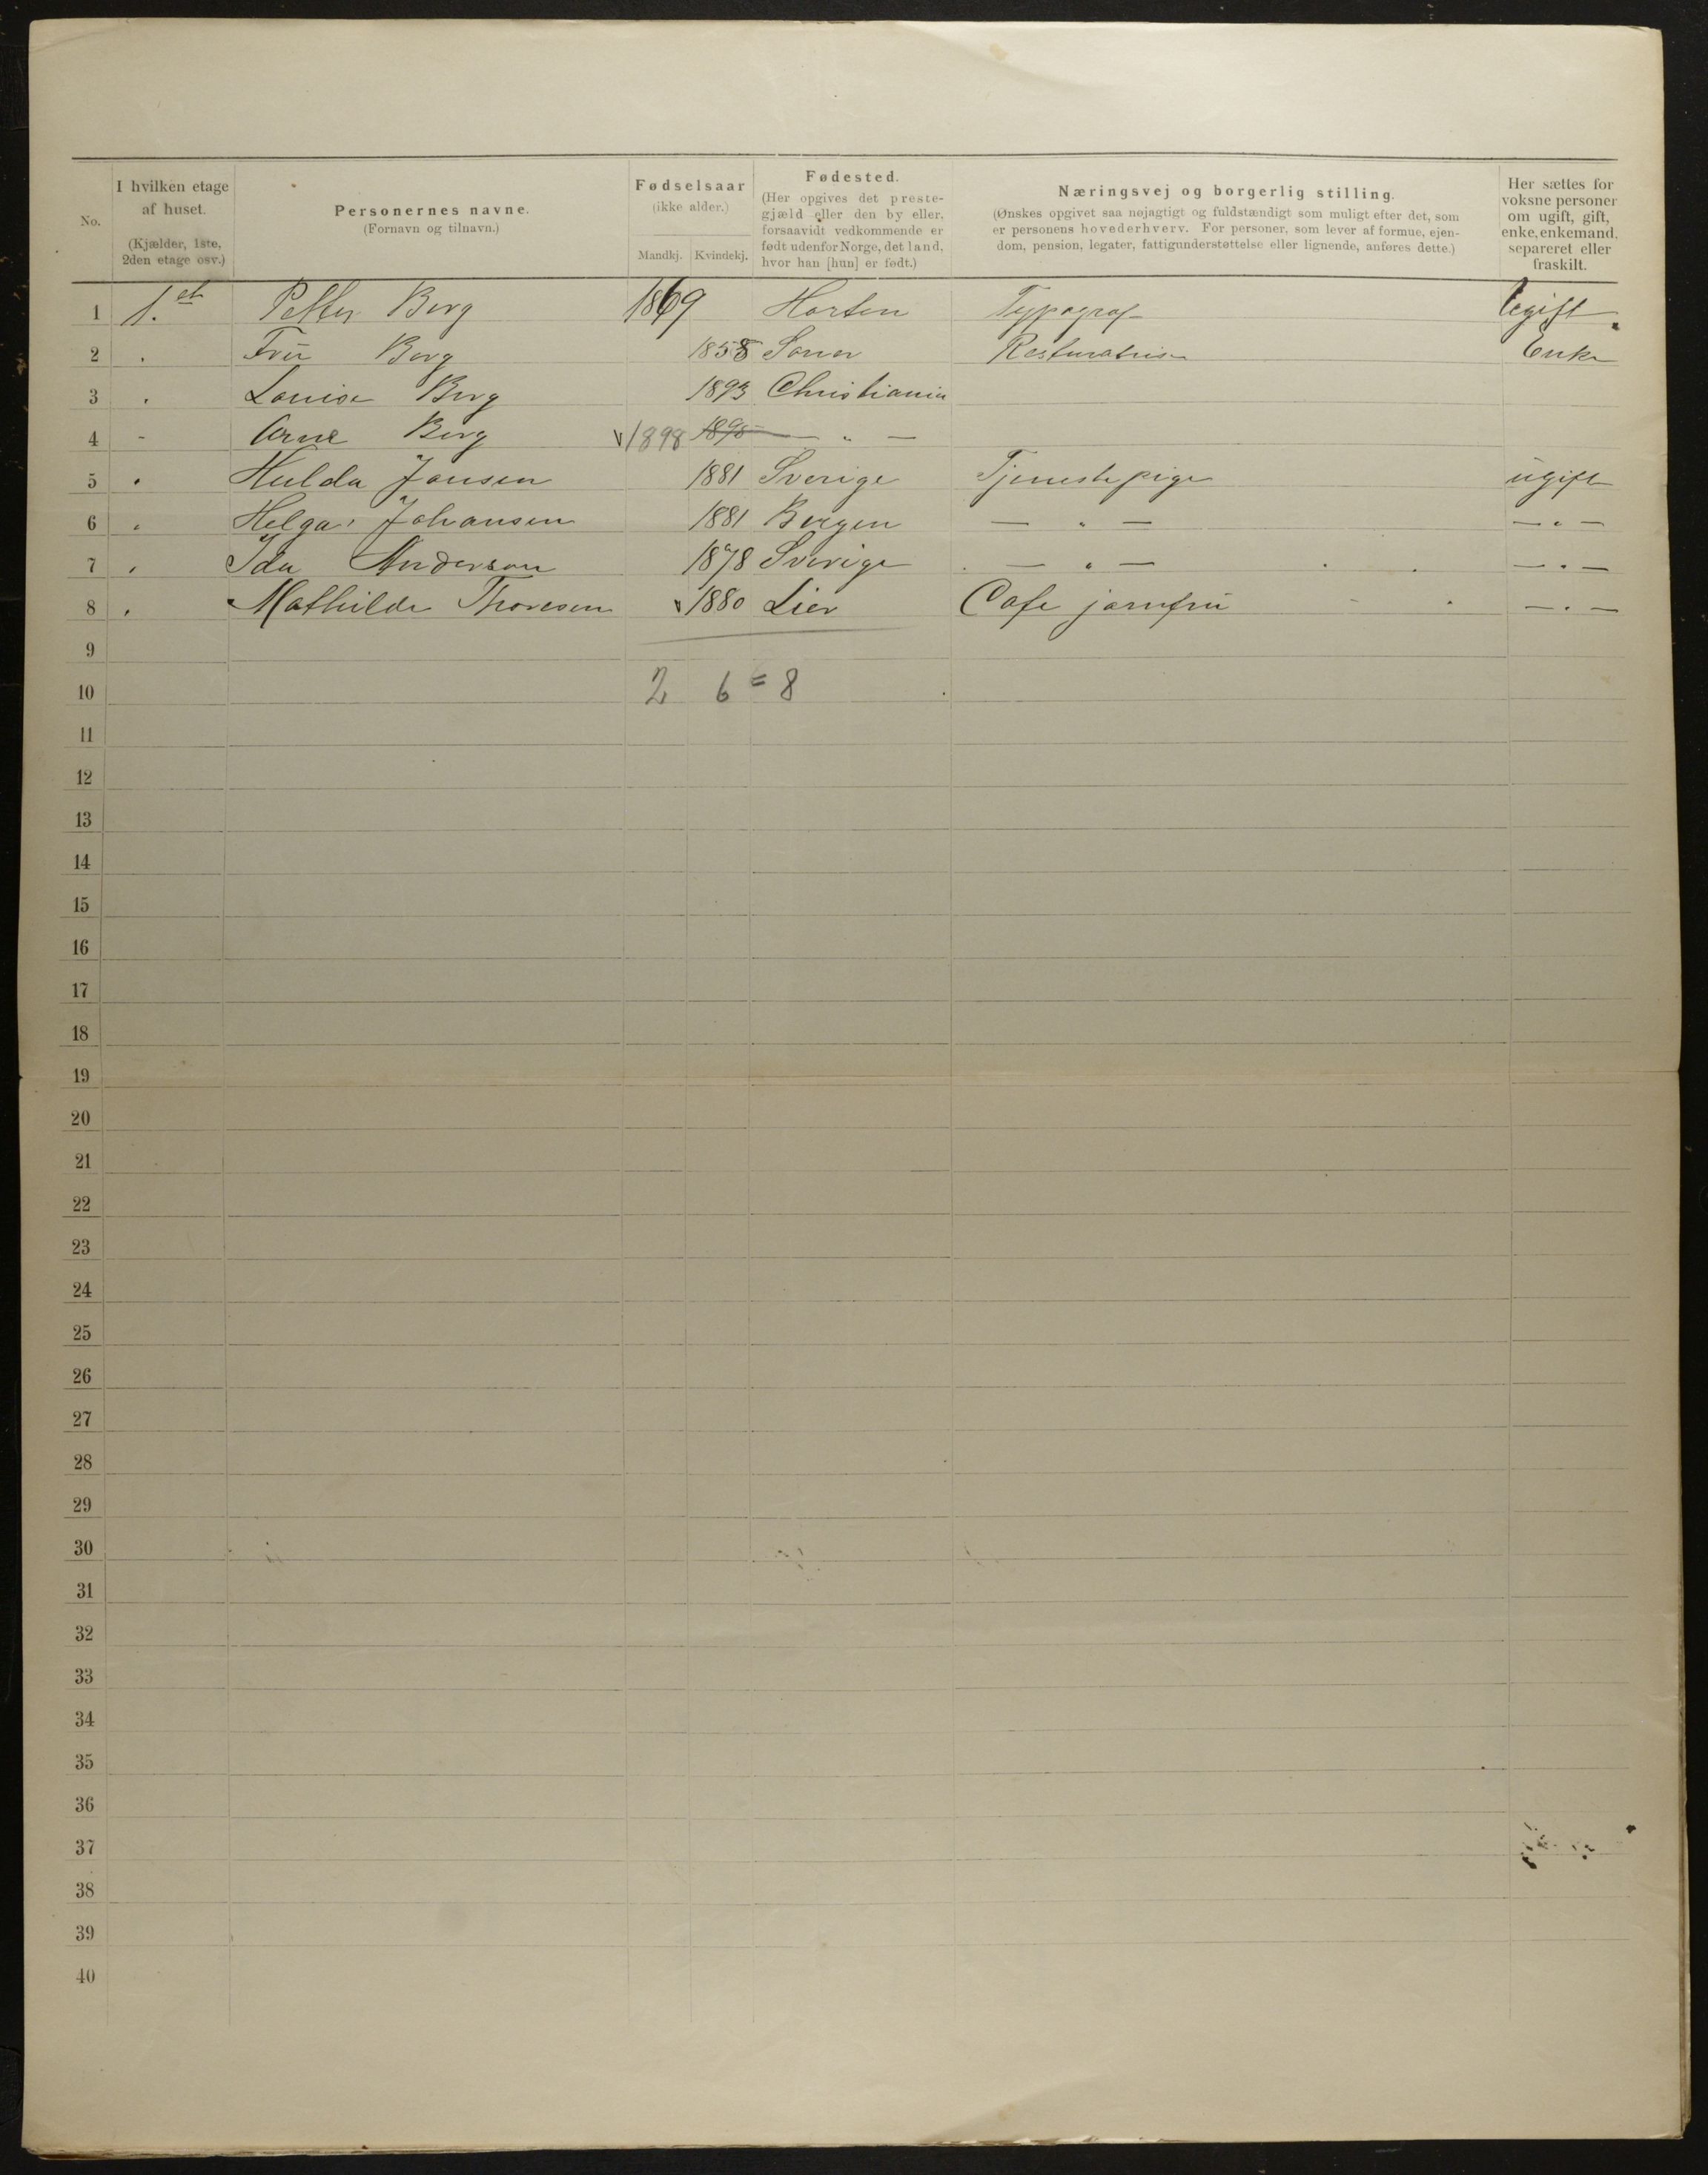 No.
I hvilken etage
af huset.
(Kjælder, 1ste,
2den etage osv.)
Personernes navne.
(Fornavn og tilnavn.)
Fødselsaar
(ikke alder.)
Mandkj. Kvindekj.
Fødested.
(Her opgives det preste-
gjæld eller den by eller,
forsaavidt vedkommende er
født udenfor Norge, det land,
hvor han [hun] er født.)
Næringsvej og borgerlig stilling.
(Ønskes opgivet saa nøjagtigt og fuldstændigt som muligt efter det, som
er personens hovederhverv. For personer, som lever af formue, ejen-
dom, pension, legater, fattigunderstøttelse eller lignende, anføres dette.)
Her sættes for
voksne personer
om ugift, gift,
enke, enkemand,
separeret eller
fraskilt.
1 1. et Petter Berg 1869 Horten Typograf Ugift
2 " Fru Berg 1858 Soner Resturatrise Enke
3 " Louise Berg 1893 Christiania
4 - Arne Berg 1898 1895 — " —
5 " Hulda Jansen 1881 Sverige Tjenestepige ugift
6 " Helga Johansen 1881 Bergen — " — — " —
7 " Ida Anderson 1878 Sverige — " — — " —
8 " Mathilde Thoresen 1880 Lier Cafe jomfru — " —
9
2 6 = 8
10
11
12
13
14
15
16
17
18
19
20
21
22
23
24
25
26
27
28
29
30
31
32
33
34
35
36
37
38
39
40